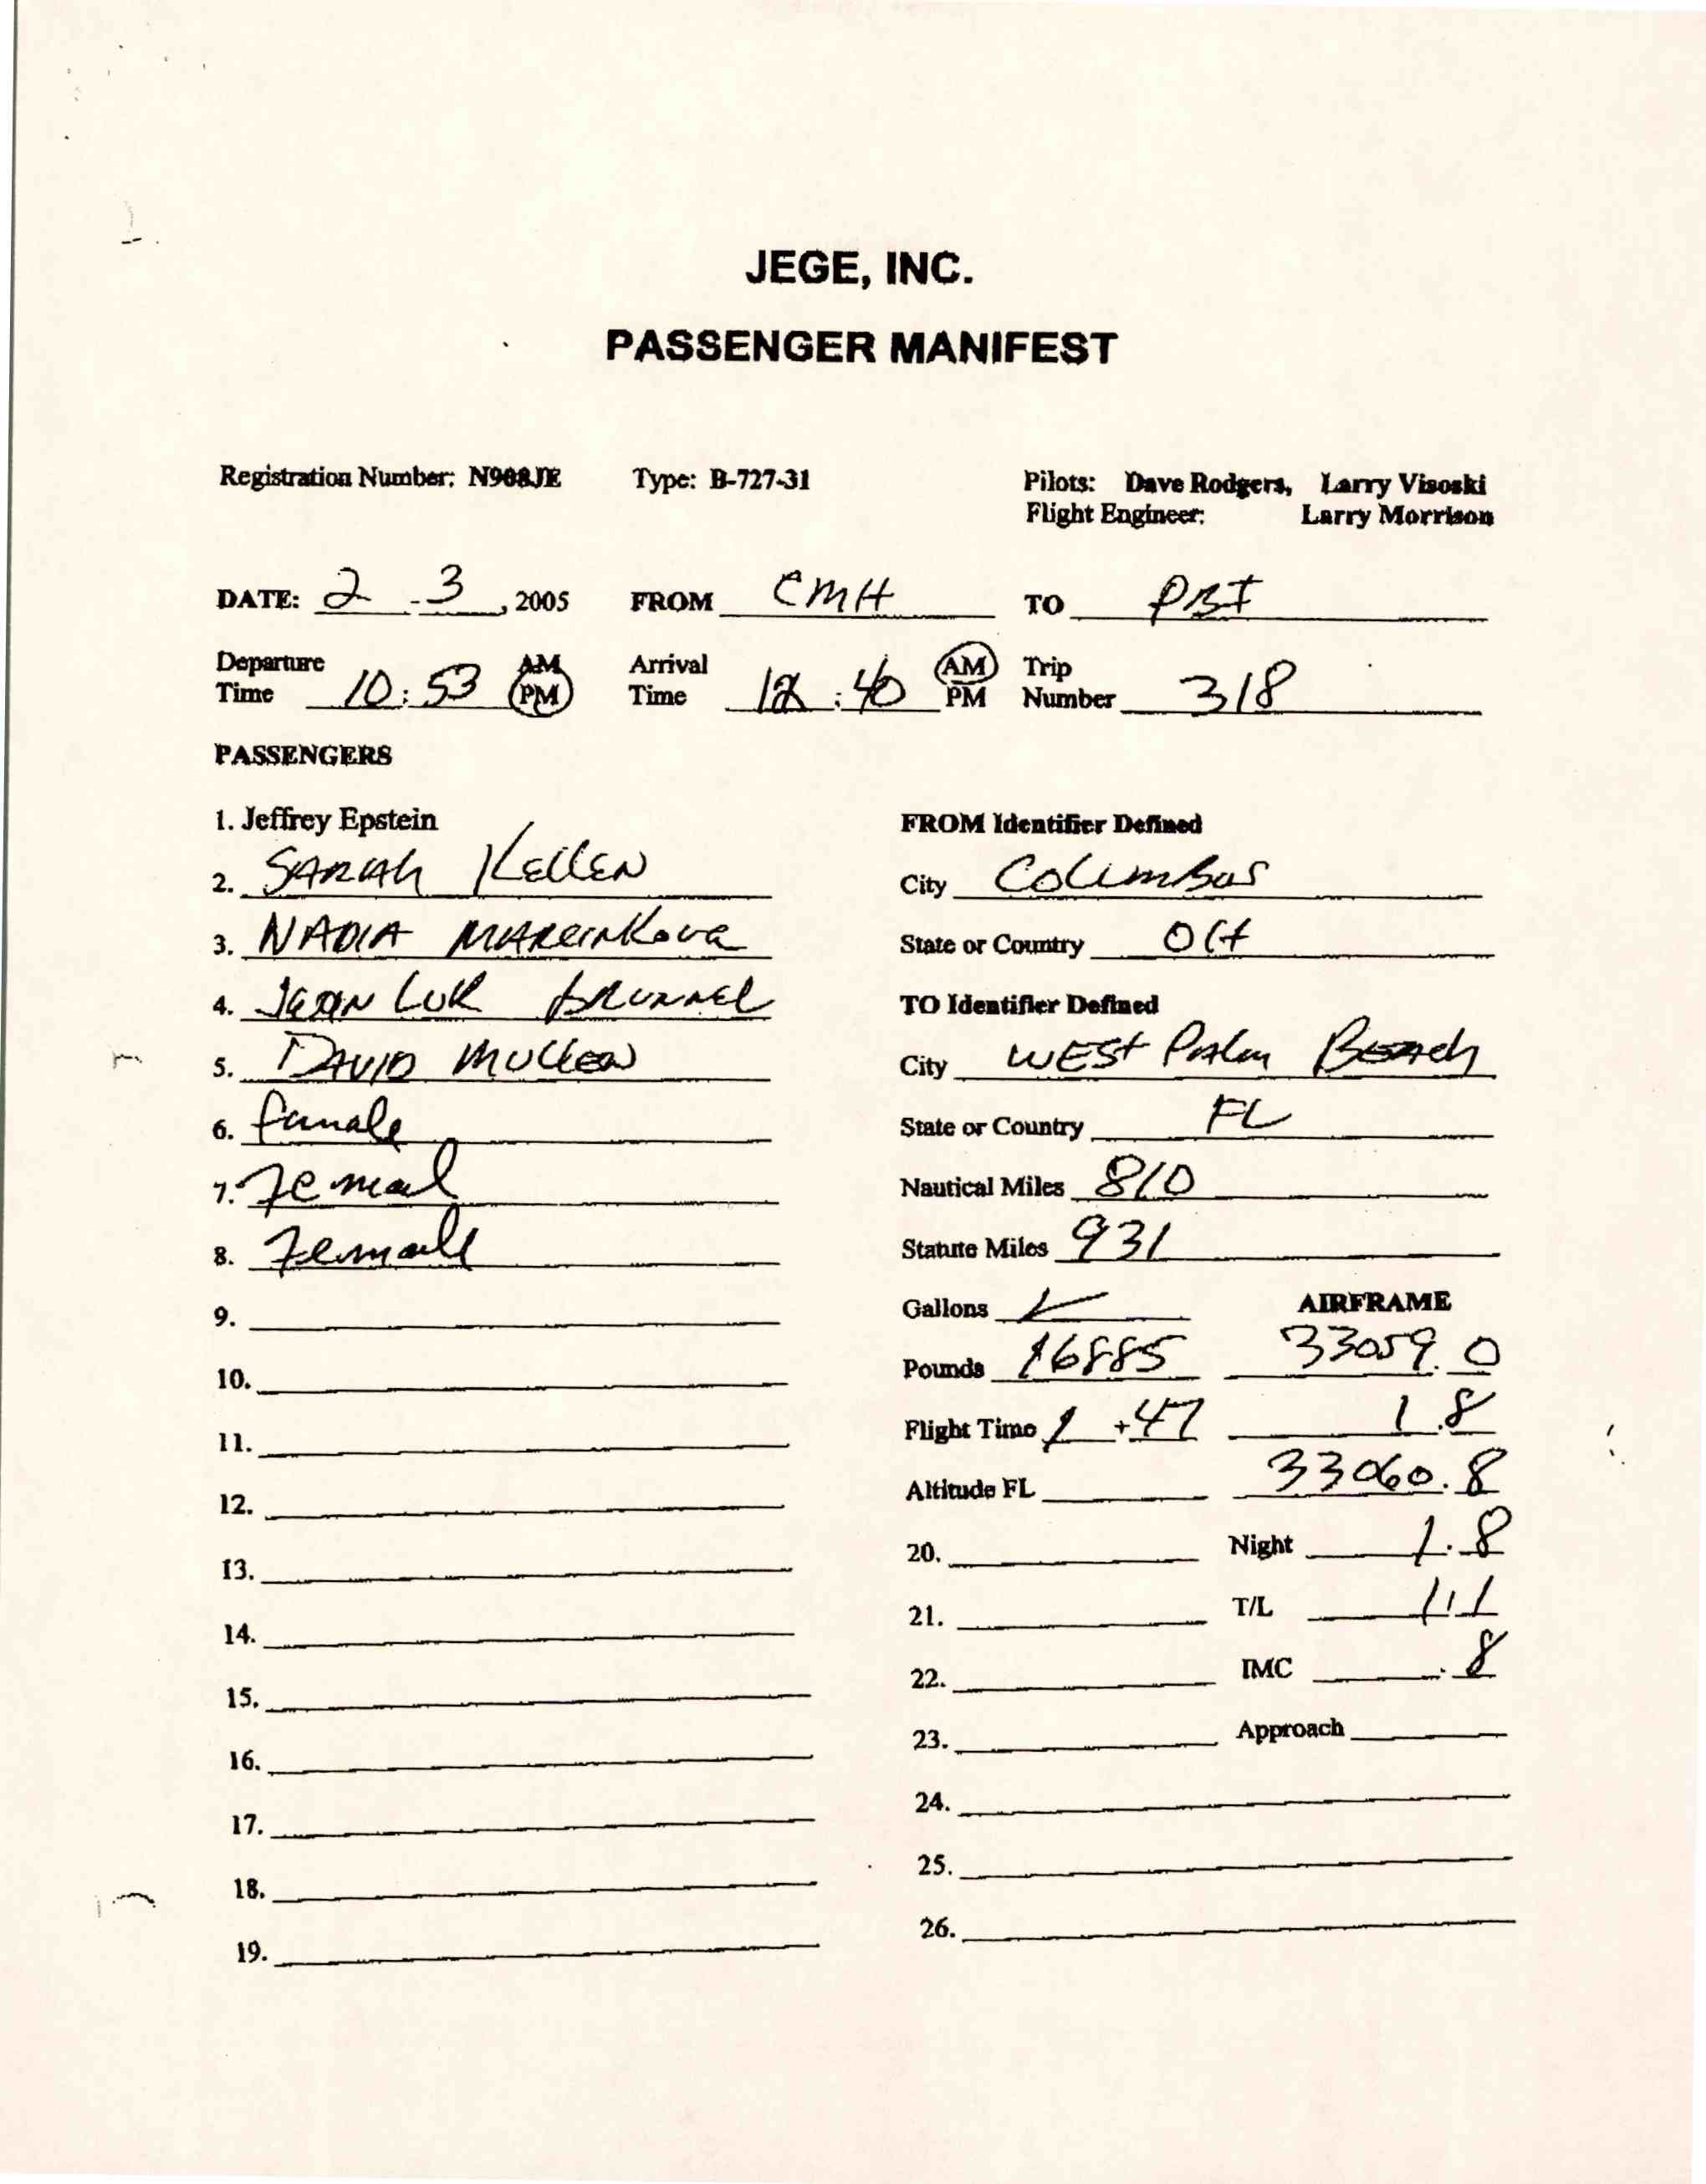 JEGE, INC.
PASSENGER MANIFEST
Registration Number: N908JE Type: B-727-31 Pilots: Dave Rodgers, Larry Visoski
Flight Engineer: Larry Morrison
DATE: 2 - 3, 2005 FROM CMH TO PBI
Departure Time 10:53 AM PM Arrival Time 12:40 AM PM Trip Number 318
PASSENGERS
1. Jeffrey Epstein
2. SARAH KELLEN
3. NADIA MARCINKOVA
4. JEAN LUK BRUNNEL
5. DAVID MULLEN
6. female
7. Femal
8. Female
9.
10.
11.
12.
13.
14.
15.
16.
17.
18.
19.
FROM Identifier Defined
City Columbus
State or Country OH
TO Identifier Defined
City WEST Palm Beach
State or Country FL
Nautical Miles 810
Statute Miles 931
Gallons AIRFRAME
Pounds 16885 33059.0
Flight Time 1 +47 1.8
Altitude FL 33060.8
20. Night 1.8
21. T/L 1/1
22. IMC .8
23. Approach
24.
25.
26.